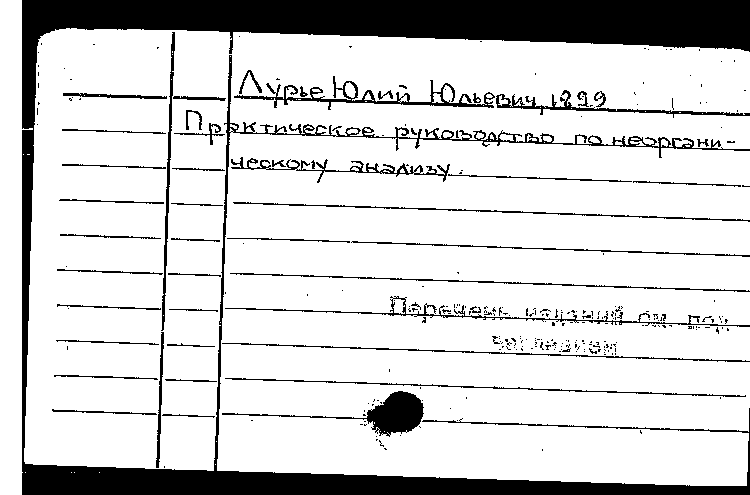 Лурье, Юлий Юльевич, 1899
Практическое руководство по неоргани-
ческому анализу.
Перечень изданий см. под
заглавием